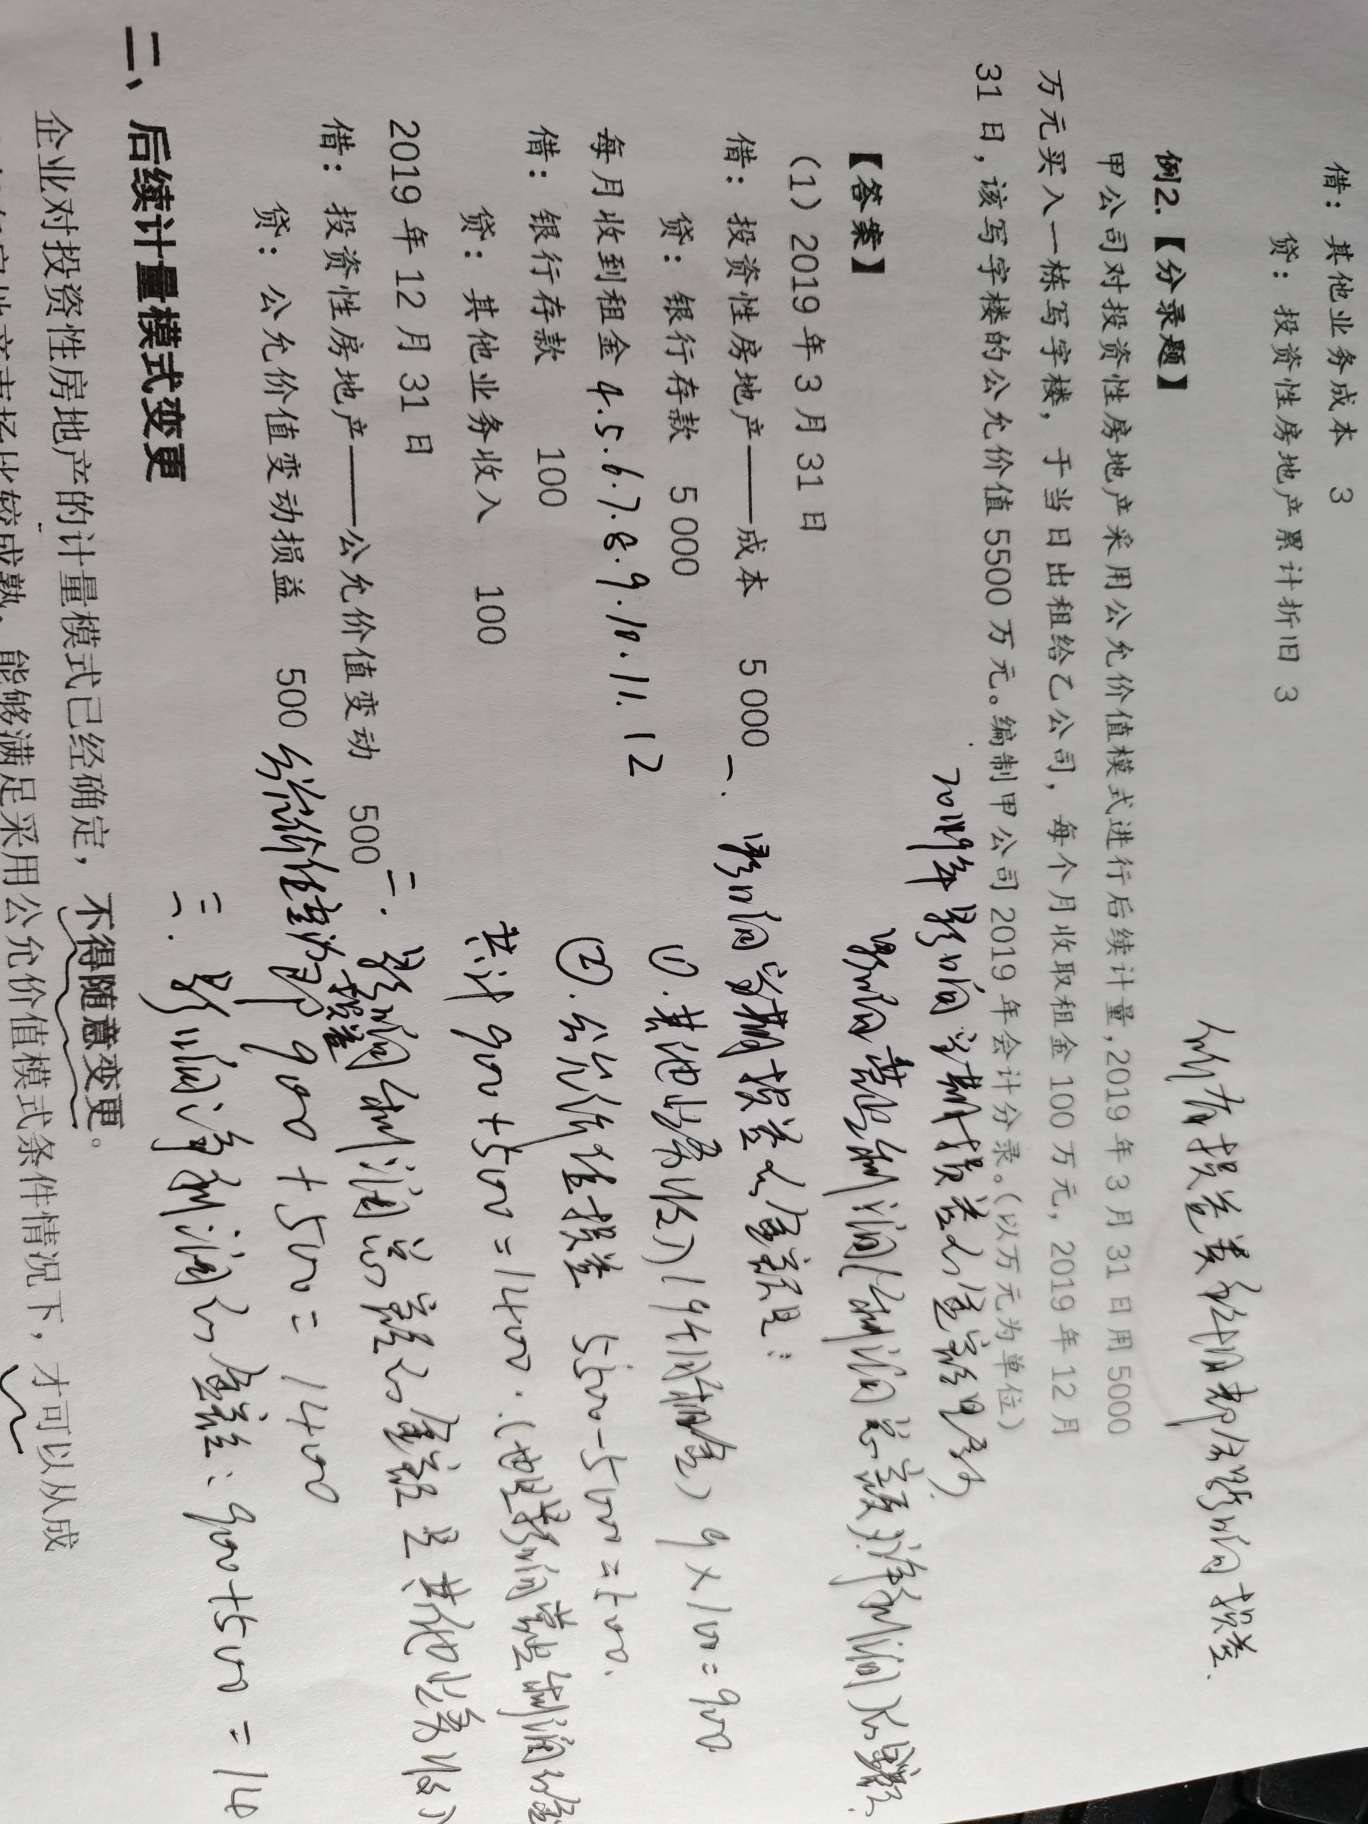 借：其他业务成本 3
贷：投资性房地产累计折旧 3
所有损益类科目都会影响损益.
例2.【分录题】
甲公司对投资性房地产采用公允价值模式进行后续计量,2019年3月31日用5000
万元买入一栋写字楼，于当日出租给乙公司，每个月收取租金100万元，2019年12月
31日,该写字楼的公允价值5500万元。编制甲公司2019年会计分录。(以万元为单位)
2019年影响当期损益的金额是多少.
影响营业利润/利润总额/净利润的金额.
【答案】
(1) 2019年3月31日
借：投资性房地产——成本 5 000
贷：银行存款 5 000
每月收到租金 4.5.6.7.8.9.10.11.12
借：银行存款 100
贷：其他业务收入 100
2019年12月31日
借：投资性房地产——公允价值变动 500
贷：公允价值变动损益 500
一. 影响当期损益的金额是:
①.其他业务收入(9个月租金) 9×100=900
②.公允价值损益 5500-5000=500.
共计 900+500=1400.(也是影响营业利润的金
二. 影响利润总额的金额是其他业务收入
公允价值变动损益即 900+500=1400
三. 影响净利润的金额: 900+500=14
二、后续计量模式变更
企业对投资性房地产的计量模式已经确定，不得随意变更。
市场比较成熟、能够满足采用公允价值模式条件情况下，才可以从成